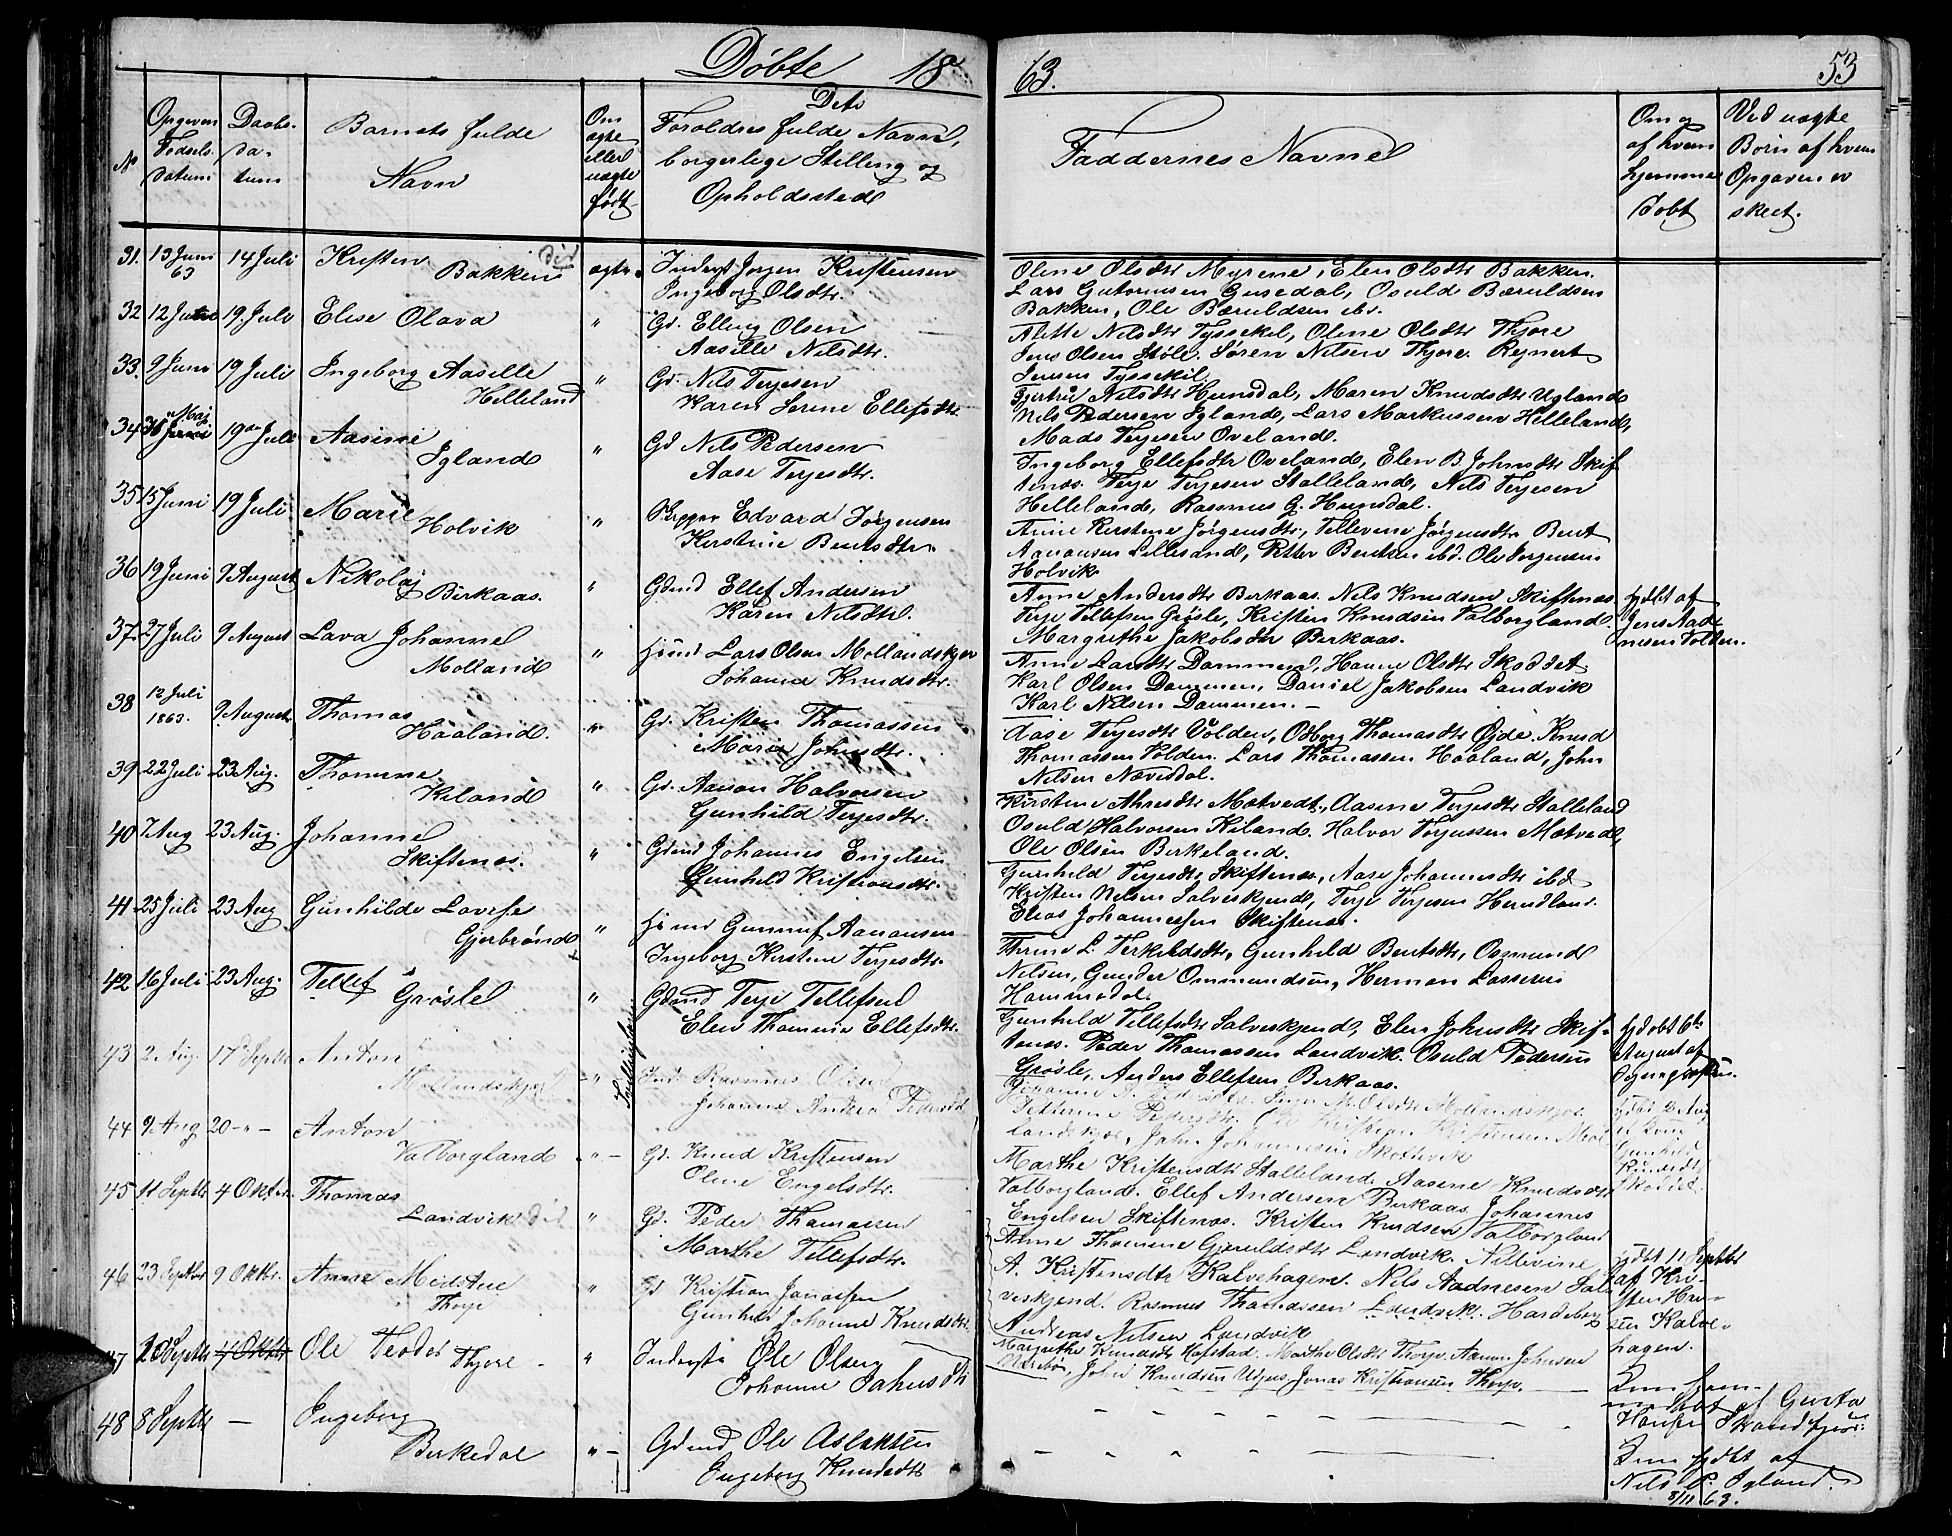 Døbte 1863. 53
No
Opgiven Fødsels datum
Daabs- da- tum
Barnets fulde Navn
Om ægte eller uægte født
Dets Forældres fulde Navne, borgerlige Stilling og Opholdssted
Faddernes Navne
Om og af hvem hjemme døbt
Ved uægte Børn af hvem Opgaven er skeet.
31. 13 Juni 63 14 Juli Kristen Bakken ægte Inderst Jørgen Kristensen
Ingeborg Olsdtr.
Olene Olsdtr Myrene, Elen Olsdtr Bakken.
Lars Gutormsen Gusedal, Osuld Bæruldsen
Bakken, Ole Bæruldsen ibd.
32 12 Juni 19. Juli Elise Olava " Gd. Elling Olsen
Aasille Nilsdtr.
Alette Nilsdtr Tyssekil, Oline Olsdtr Thjore
Jens Olsen Støle. Søren Nilsen Thjore. Rejnert
Jensen Tyssekil
33. 9 Juni 19 Juli Ingeborg Aaselle Helleland " Gd. Nils Terjesen
Karen Serine Ellefsdtr
Gjertru Nilsdtr Hunsdal, Maren Knudsdtr Ugland
Nils Pedersen Igland, Lars Markussen Helleland,
Mads Terjesen Oveland.
34 31 Maj 19 Juli Aasine Igland " Gd Nils Pedersen
Aase Terjesdtr.
Ingeborg Ellefsdtr Oveland, Elen B. Johnsdtr Skif
tenæs. Terje Terjesen Stalleland, Nils Terjesen
Helleland, Rasmus G. Hunsdal.
35 15 Juni 19 Juli Marie Holvik " Skipper Edvard Jørgensen
Kerstine Bentsdtr.
Anne Kerstine Jørgensdtr, Tellevine Jørgensdtr Bent
Aanansen Lillesand, Peter Bentsen ibd. Ole Jørgensen
Holvik
36 19 Juni 9 August Nikolaj Birkaas. " Gdmd Ellef Andersen
Karen Nilsdtr.
Anne Andersdtr Berkaas. Nils Knudsen Skiftenæs
Terje Tellefsen Grøsle, Kristen Knudsen Valborgland
Margrethe Jakobsdtr Birkaas.
hjdbt af Jens Aadnesen Volden.
37. 27 Juli 9 August Lava Johanne Molland " Hmd Lars Olsen Mollandskjær
Johanne Knudsdtr.
Anne Larsdtr Dammen, Hanne Olsdtr Skoddet
Karl Olsen Dammen, Daniel Jakobsen Landvik
Karl Nilsen Dammen. —
38 12 Juli 1863. 9 August Thomas Haaland. " Gd. Kristen Thomassen
Marie Johnsdtr.
Aase Terjesdtr Volden, Odborg Thomasdtr Øjde. Knud
Thomassen Volden. Lars Thomassen Haaland, John
Nilsen Næveisdal.
39 22 Juli 23 Aug. Thomine Kiland " Gd. Aanon Halvorsen
Gunhild Terjesdtr.
Kirstine Ahresdtr Mætvedt, Aasene Terjesdtr Stalleland
Osuld Halvorsen Kiland. Halvor Terjussen Mætved,
Ole Olsen Berkeland.
40 7 Aug 23 Aug. Johanne Skiftenæs. " Gdmd Johannes Engelsen
Gunhild Kristiansdtr.
Gunhild Terjesdtr Skiftenæs, Aase Johannesdtr ibd
Kristen Nilsen Salveskjend, Terje Terjesen Herudland.
Elias Johannessen Skiftenæs.
41 25 Juli 23 Aug Gunhilde Lovise Gjerbrønd " Hmd Gunnuf Aanansen
Ingeborg Kirstine Terjesdtr.
Thrine L. Terkildsdtr, Gunhild Bentsdtr, Osmund
Nilsen, Gunder Ommundsen, Herman Lassesen
Hammedal.
42 16 Juli 23 Aug. Tellef Grøsle " Gdmd Terje Tellefsen
Elen Thomine Ellefsdtr.
Gunhild Tellefsdtr Salveskjend, Elen Johnsdtr Skif-
tenæs. Peder Thomassen Landvik. Osuld Pedersen
Grøsle, Anders Ellefsen Birkaas.
hjdøbt 6te August af
43 2 Aug. 17 Septbr Anton Mollandskjær " Tvillinger Ind. Rasmus Olsen
Johanne Andrea Pedersdtr
landskjær, John Johannesen Skottevik
44 9 Aug 20 - " - Anton Valborgland " - Gd. Knud Kristensen
Oline Engelsdtr.
Marthe Kristensdtr Stalleland. Aasene Knudsdtr
Valborgland. Ellef Andersen Berkaas, Johannes
Engelsen Skiftenæs. Kristen Knudsen Valborgland
45 11 Septbr 4 Oktbr. Thomas Landvik " Gd. Peder Thomassen
Marthe Tellefsdtr.
Anne Thomine Gjeruldsdtr Landvik. Nillevine
A. Kristensdtr Kalvehagene. Nils Aadnesen Sal
veskjend. Rasmus Thomassen Landvik. Hardeberg
Andreas Nilsen Landvik
hjdbt 11 Septbr af Kristen Hansen Kalvehagen.
46 23 Septbr 9 Oktbr. Anne Thorje " Gd Kristian Jonassen
Gunhild Johanne Knudsdtr.
Margrethe Knudsdtr Hofstad. Marthe Olsdtr Thorje. Aanon Johnsen
Nærebø, John Knudsen Ugjus, Jonas Kristiansen Thorje.
47 28 Septbr 4 Oktbr Ole Teodor Thjore - " Inderste Ole Olsen
Johanne Jahnsdtr
af Gusta
Hansen Strandfjær.
48 8 Septbr — Ingeborg Berkedal " - Gdmd Ole Aslaksen
Ingeborg Knudsdtr
hjdbt af
Nils P. Igland.
8/11 63.